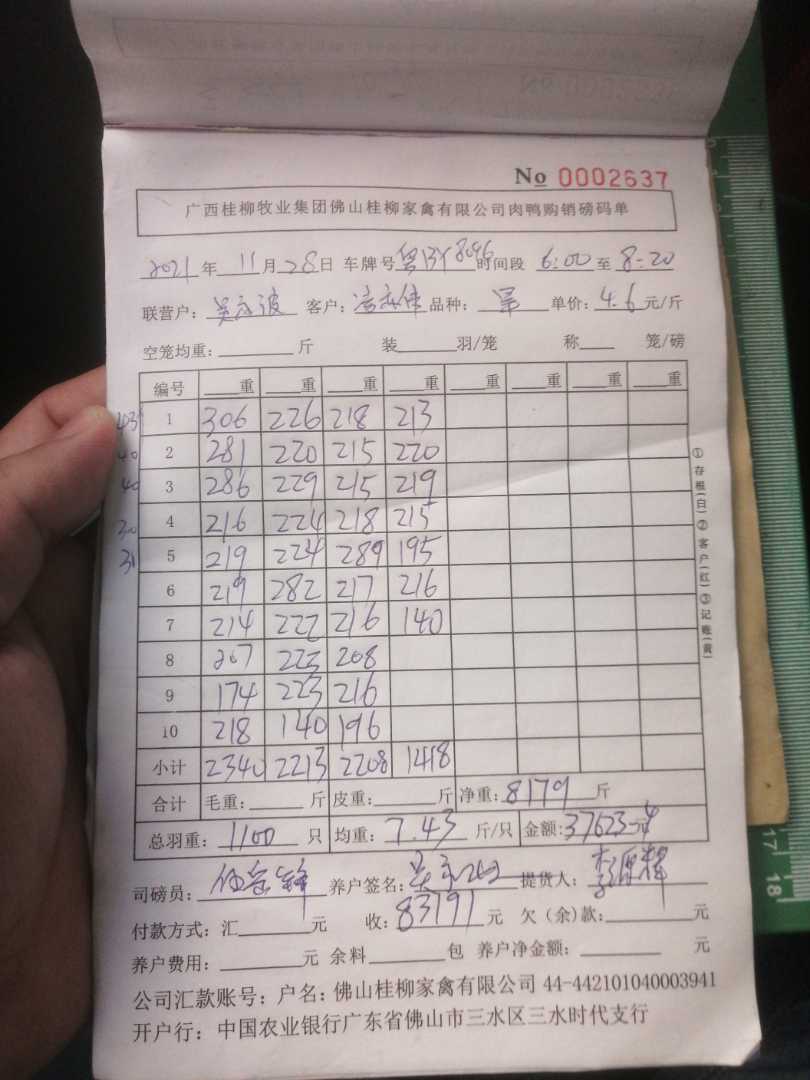 No 0002637
广西桂柳牧业集团佛山桂柳家禽有限公司肉鸭购销磅码单
2021年 11月28日 车牌号 8096 时间段 6:00 至 8-20
联营户: 客户: 品种: 单价: 4.6 元/斤
空笼均重: 斤 装 羽/笼 称 笼/磅
编号 重 重 重 重 重 重 重 重
1 306 226 218 213
40 2 281 220 215 220
40 3 286 229 215 219
30 4 216 224 218 215
31 5 219 224 289 195
6 219 282 217 216
7 214 222 216 140
8 207 223 208
9 174 223 216
10 218 140 196
小计 2340 2213 2208 1418
合计 毛重: 斤 皮重: 斤 净重: 8179 斤
总羽重: 1100 只 均重: 7.43 斤/只 金额: 37623元
司磅员: 养户签名: 提货人:
付款方式: 汇 元 收: 83191 元 欠(余)款: 元
养户费用: 元 余料 包 养户净金额: 元
公司汇款账号: 户名: 佛山桂柳家禽有限公司 44-442101040003941
开户行: 中国农业银行广东省佛山市三水区三水时代支行
①存根(白)②客户(红)③记账(黄)
17
18